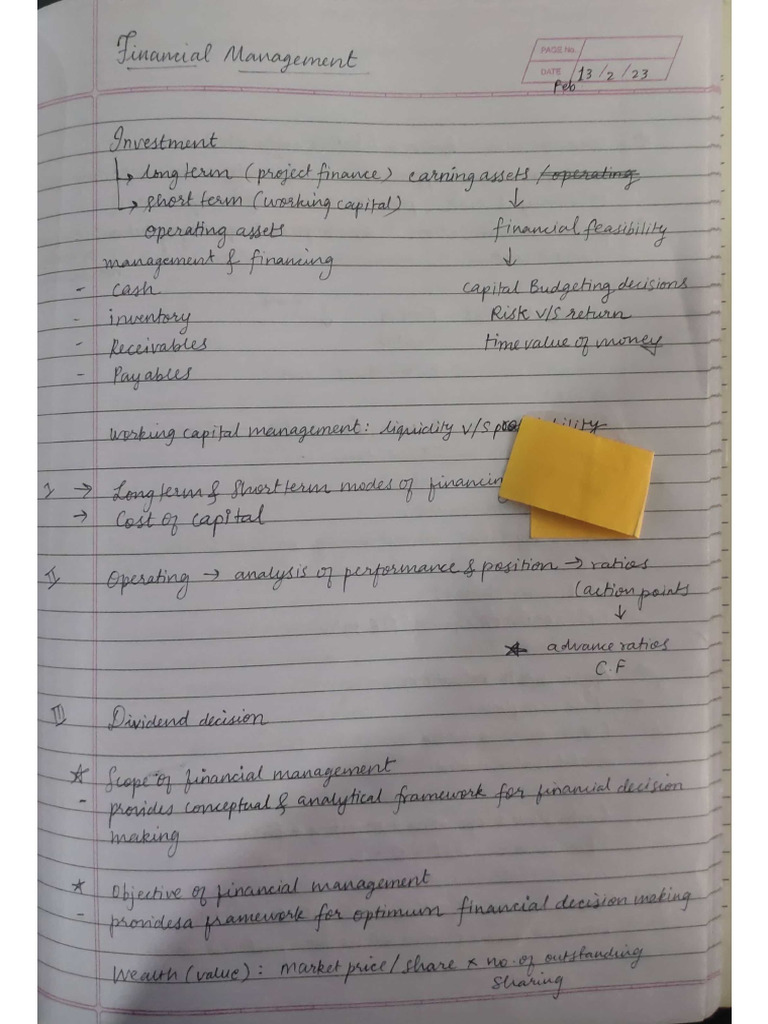 Financial Management
PAGE No.
DATE 13/2/23
Feb
Investment
↳ long term (project finance) earning assets /operating
↳ short term (working capital) ↓
operating assets financial feasibility
management & financing ↓
- cash capital Budgeting decisions
- inventory Risk v/s return
- Receivables time value of money
- Payables
working capital management: liquidity v/s
I → Long term & short term modes of
→ Cost of capital
II Operating → analysis of performance & position → ratios
(action points
↓
* advance ratios
C.F
III Dividend decision
* Scope of financial management
- provides conceptual & analytical framework for financial decision
making
* Objective of financial management
- provides a framework for optimum financial decision making
Wealth (value) : market price/share × no. of outstanding
sharing